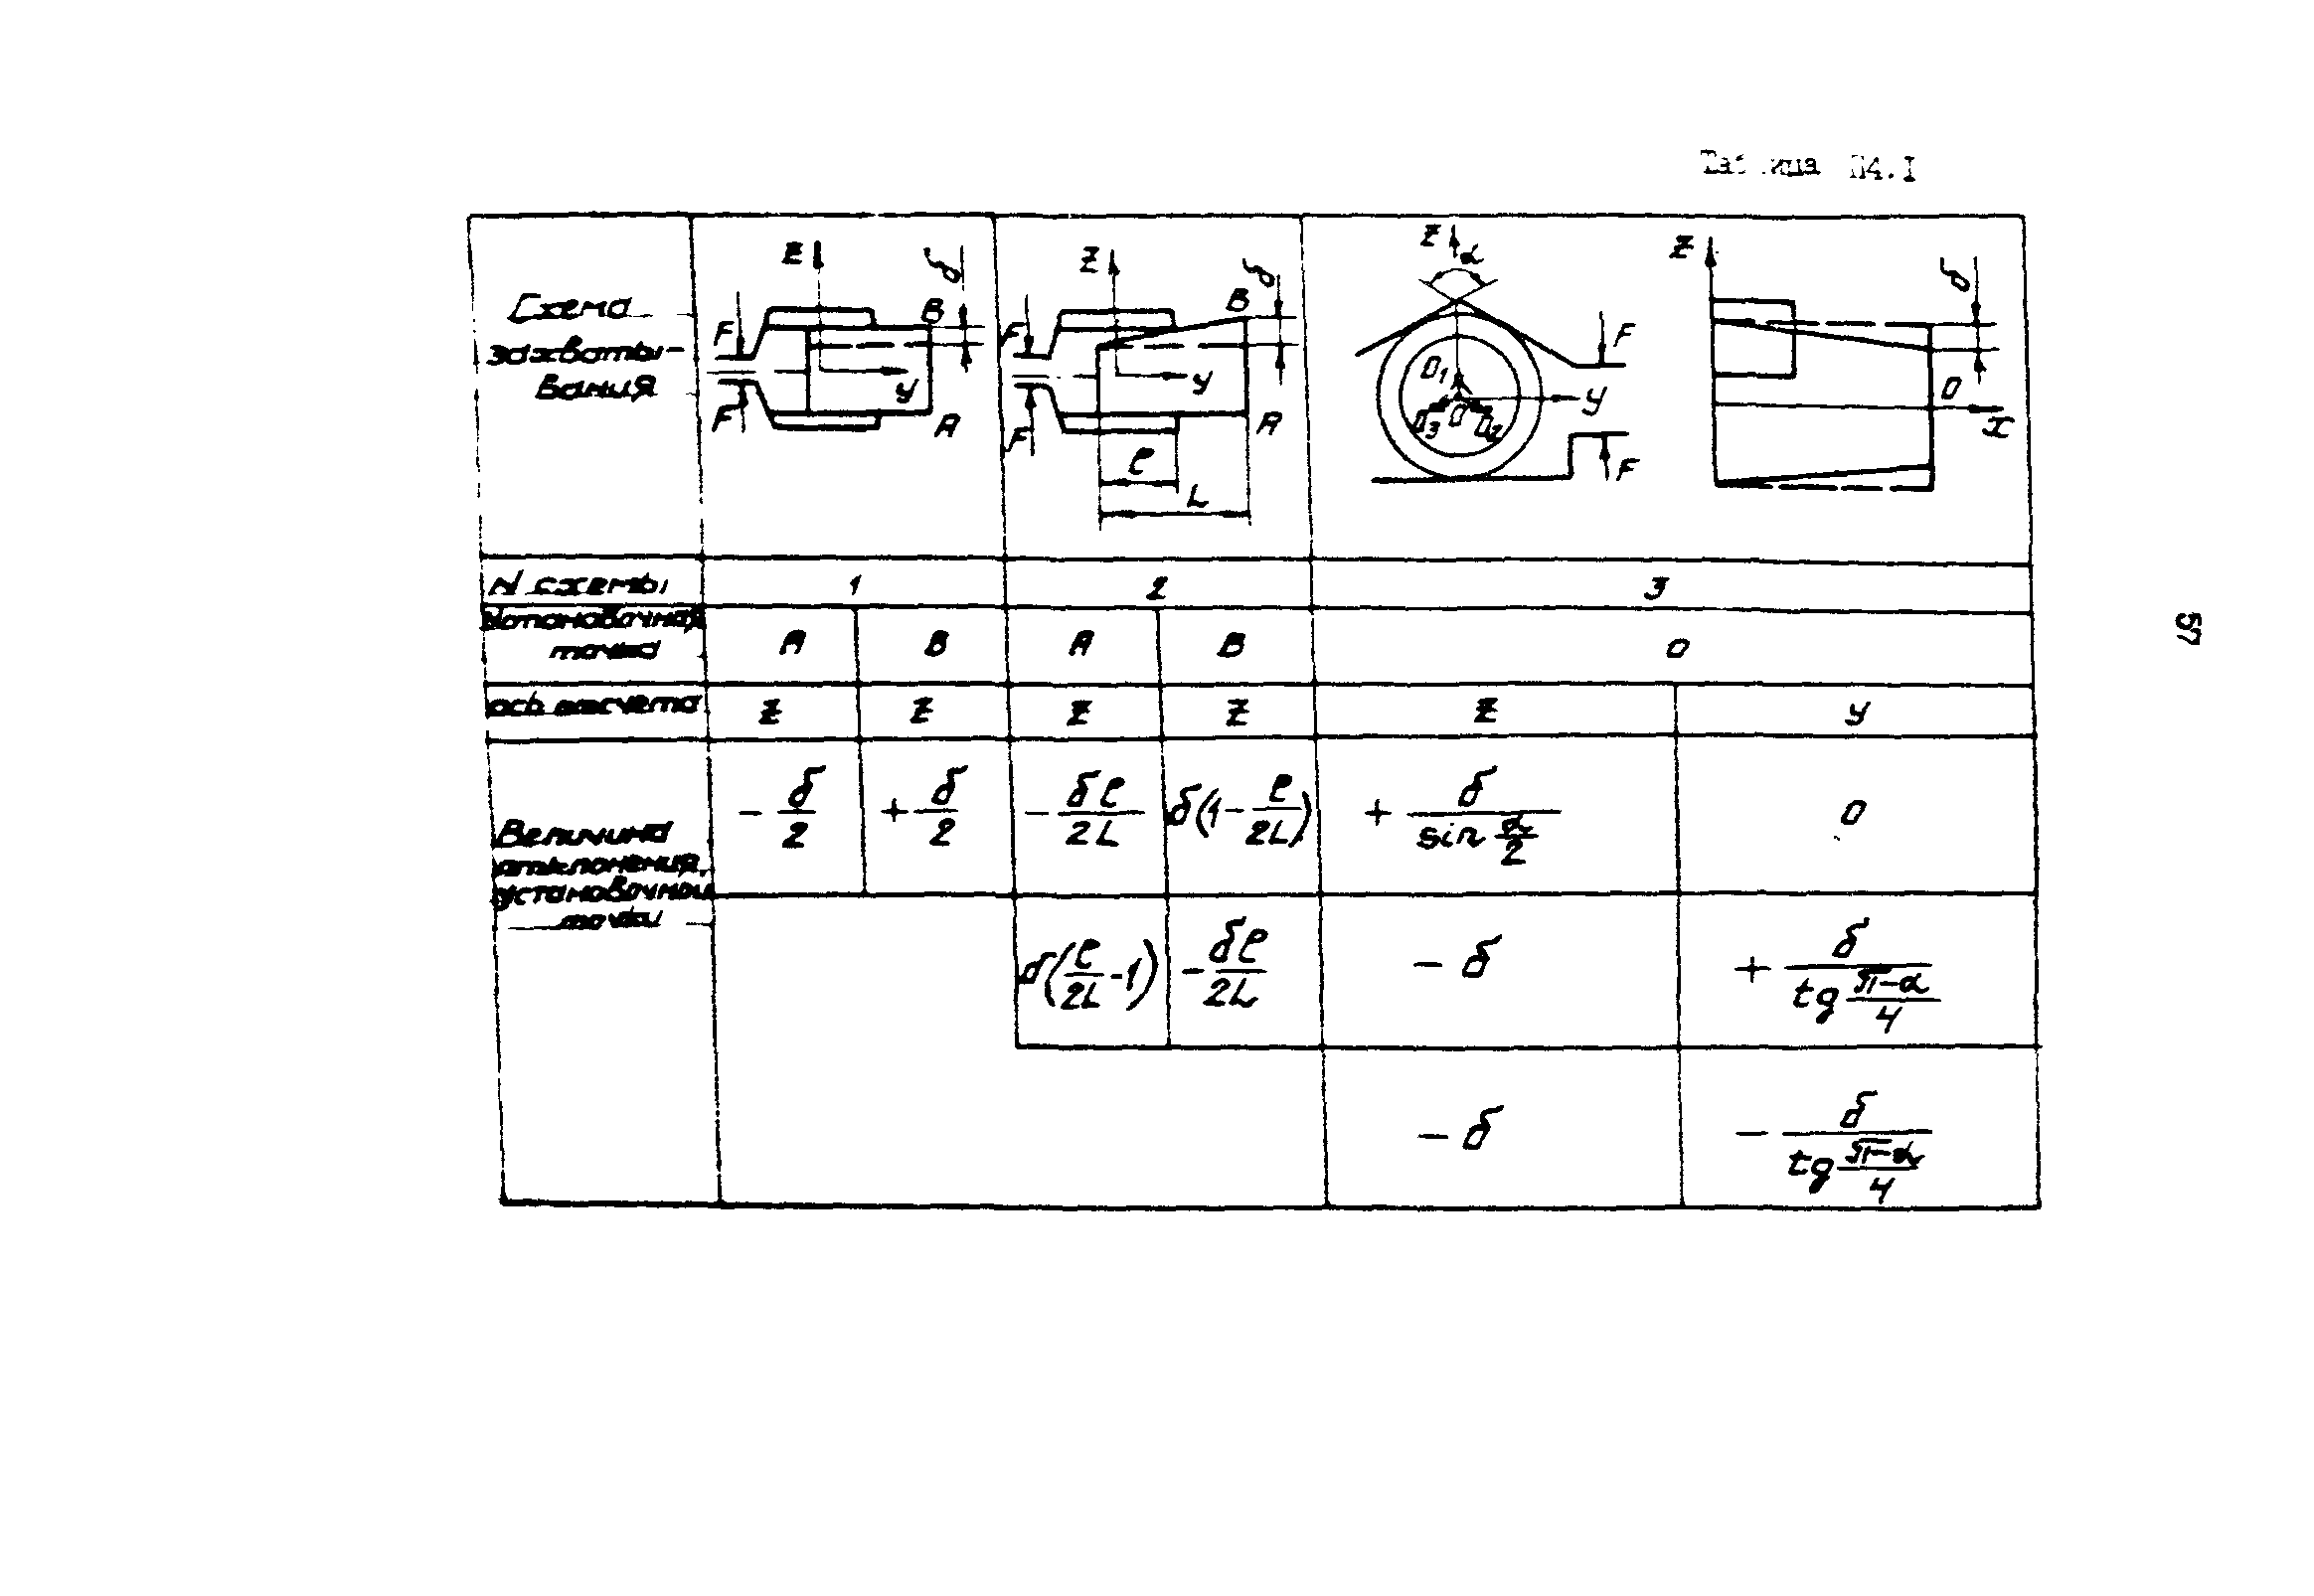 Таблица П4.I
Схема
захваты-
вания
Z δ B F y F A
Z δ B F y F A l L
Z α F O1 O3 O O2 y F
Z δ O x
N схемы 1 2 3
Установочная
точка A B A B O
ось отсчета Z Z Z Z Z y
Величина
отклонения
установочной
точки
- δ/2 + δ/2 - δl/2L δ(1 - l/2L) + δ/sin α/2 0
δ(l/2L - 1) - δl/2L - δ + δ/tg π-α/4
- δ - δ/tg π-α/4
57